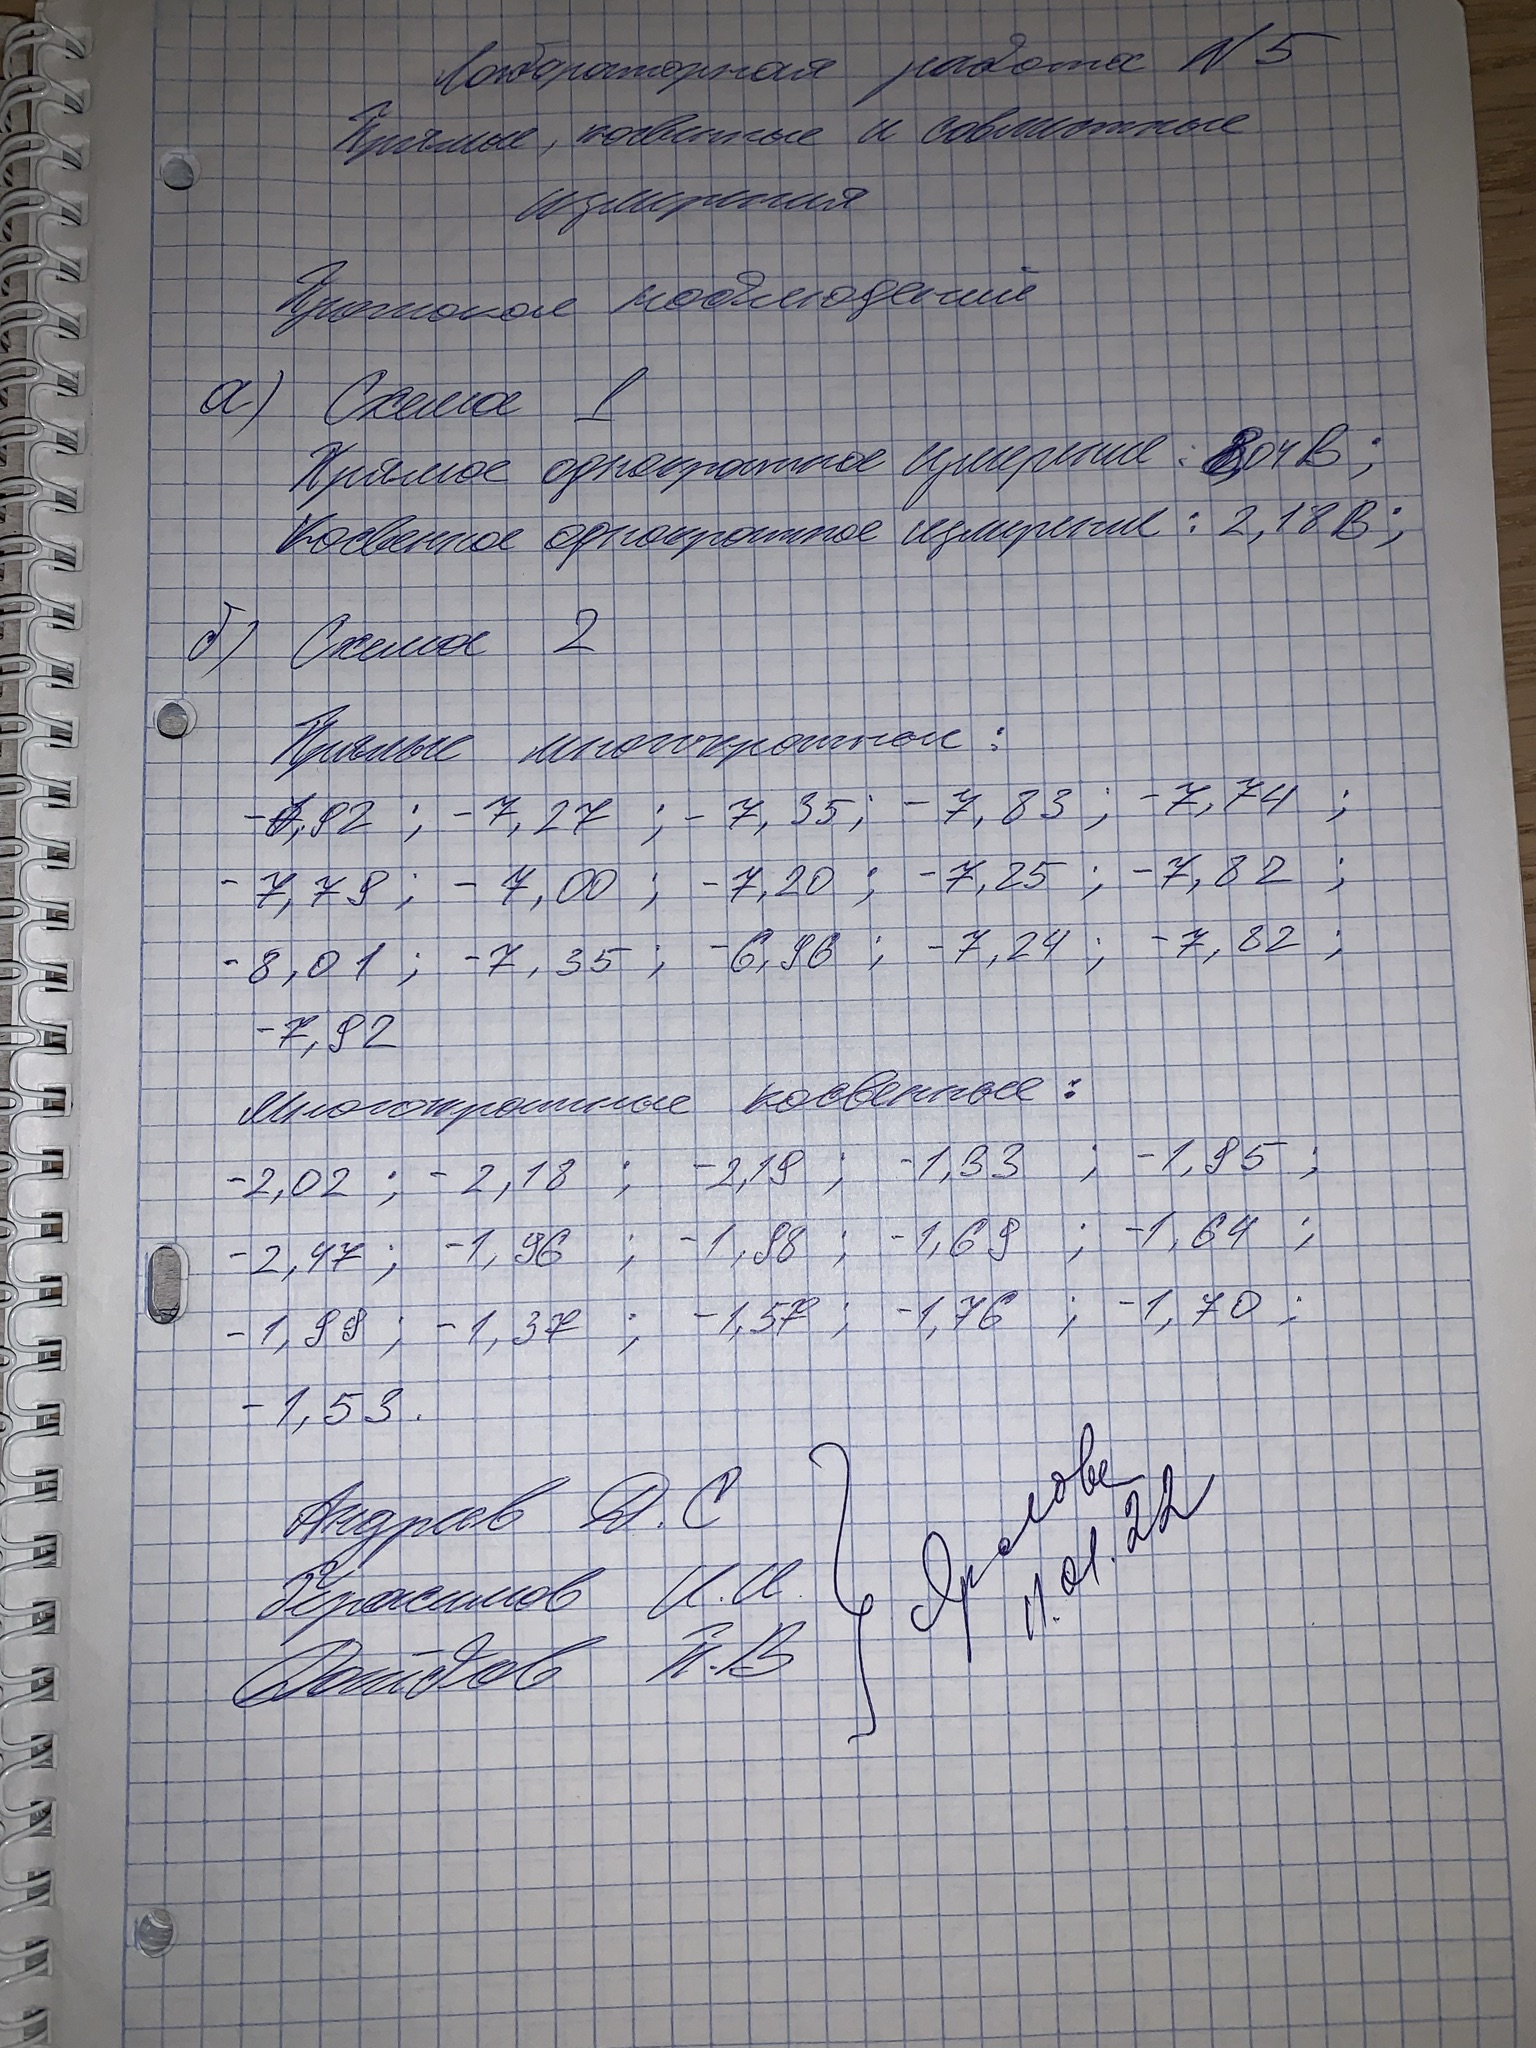 Лабораторная работа N 5
Прямые, косвенные и совместные
измерения
Протокол наблюдений
а) Схема 1
Прямое однократное измерение: 8,04 В;
Косвенное однократное измерение: 2,18 В;
б) Схема 2
Прямые многократные:
-7,92; -7,27; -7,35; -7,83; -7,74;
-7,79; -7,00; -7,20; -7,25; -7,82;
-8,01; -7,35; -6,96; -7,24; -7,82;
-7,92
Многократные косвенные:
-2,02; -2,18; -2,19; -1,93; -1,95;
-2,47; -1,96; -1,98; -1,69; -1,64;
-1,99; -1,37; -1,57; -1,76; -1,70;
-1,53.
Андреев Д.С
Герасимов И.И.
Давидов П.В
11.01.22